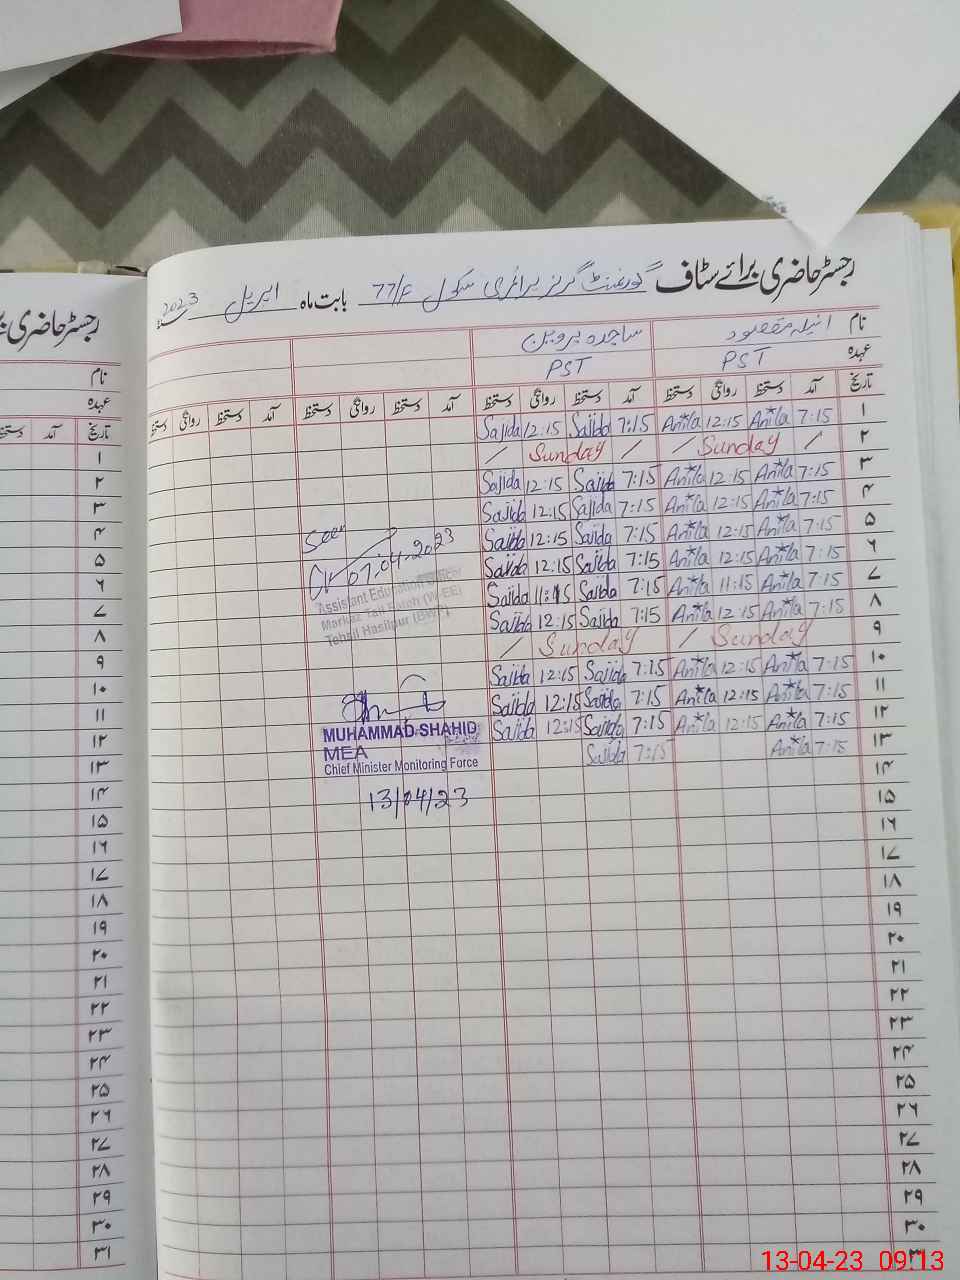 رجسٹر حاضری برائے سٹاف گورنمنٹ گرلز پرائمری سکول 77/F بابت ماہ اپریل 2023
نام انیلہ مقصود ساجدہ پروین
عہدہ PST PST
تاریخ آمد دستخط روانگی دستخط آمد دستخط روانگی دستخط آمد دستخط روانگی دستخط آمد دستخط روانگی دستخط
۱ 7:15 Anila 12:15 Anila 7:15 Sajida 12:15 Sajida
۲ / Sunday / / Sunday /
۳ 7:15 Anila 12:15 Anila 7:15 Sajida 12:15 Sajida
۴ 7:15 Anila 12:15 Anila 7:15 Sajida 12:15 Sajida
۵ 7:15 Anila 12:15 Anila 7:15 Sajida 12:15 Sajida
۶ 7:15 Anila 12:15 Anila 7:15 Sajida 12:15 Sajida
۷ 7:15 Anila 11:15 Anila 7:15 Sajida 11:15 Sajida
۸ 7:15 Anila 12:15 Anila 7:15 Sajida 12:15 Sajida
۹ Sunday / Sunday /
۱۰ 7:15 Anila 12:15 Anila 7:15 Sajida 12:15 Sajida
۱۱ 7:15 Anila 12:15 Anila 7:15 Sajida 12:15 Sajida
۱۲ 7:15 Anila 12:15 Anila 7:15 Sajida 12:15 Sajida
۱۳ 7:15 Anila 7:15 Sajida
۱۴
۱۵
۱۶
۱۷
۱۸
۱۹
۲۰
۲۱
۲۲
۲۳
۲۴
۲۵
۲۶
۲۷
۲۸
۲۹
۳۰
Seen
07-04-2023
Assistant Education Officer
Markaz Tail (W-EE)
Tehsil Hasilpur (BWP)
MUHAMMAD SHAHID
MEA
Chief Minister Monitoring Force
13/04/23
رجسٹر حاضری
نام
عہدہ
تاریخ آمد دستخط
۱
۲
۳
۴
۵
۶
۷
۸
۹
۱۰
۱۱
۱۲
۱۳
۱۴
۱۵
۱۶
۱۷
۱۸
۱۹
۲۰
۲۱
۲۲
۲۳
۲۴
۲۵
۲۶
۲۷
۲۸
۲۹
۳۰
۳۱
13-04-23 09:13